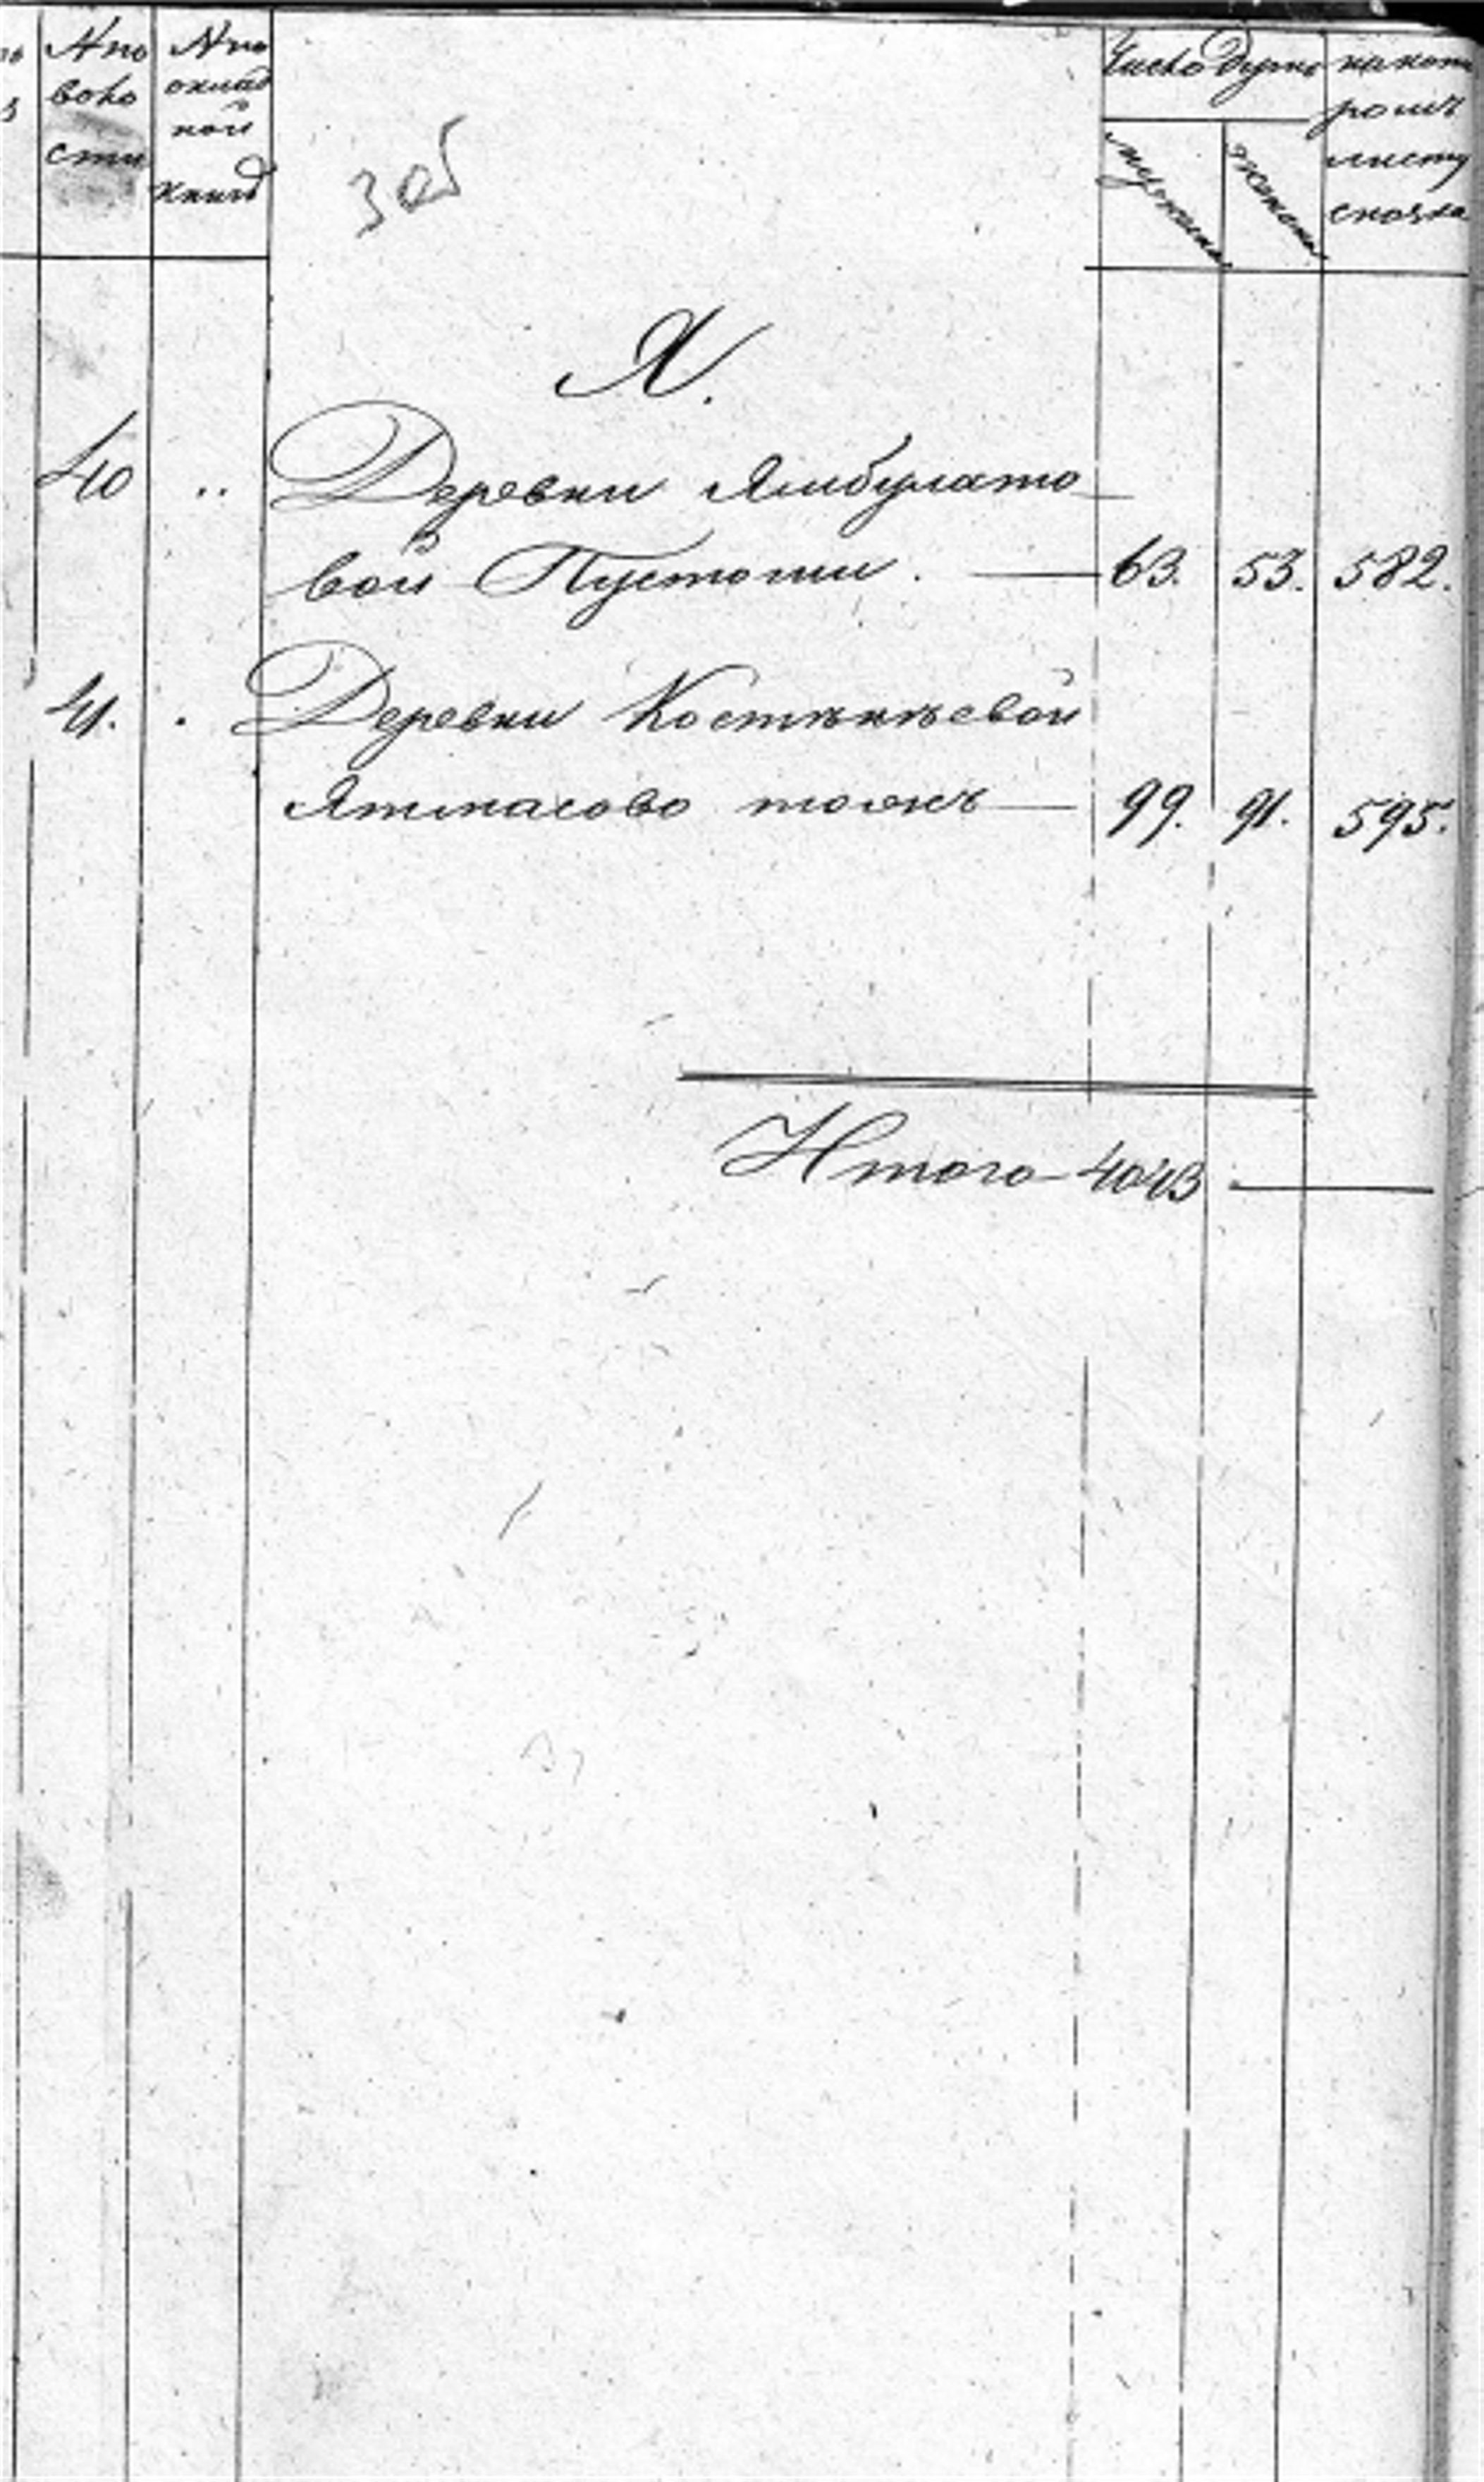 № по волости
№ по окладной книгѣ
Число душъ
мужеска
женска
на котором листу сказка
Я.
40 .. Деревни Ямбулато
вой Пустоши. — 63. 53. 582.
41. . Деревни
Атмасово тожъ — 99. 91. 595.
Итого — 4043 —